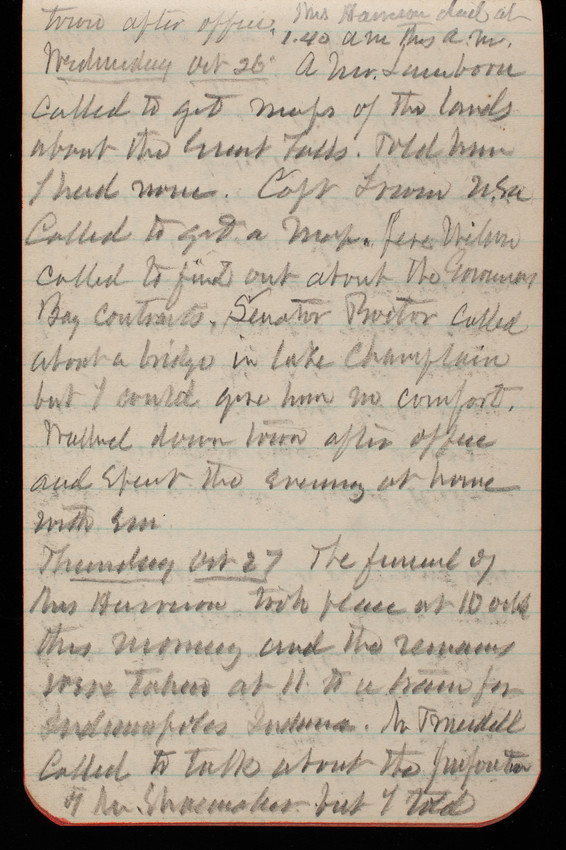 town after office. Mrs Harrison died at
1.40 a m this a.m.
Wednesday Oct 26 A Mr. Lamborn
called to get maps of the lands
about the Great Falls. Told him
I had none. Capt USA
Called to get a Map. Jere Wilson
called to find out about the Governors
Bay contracts. Senator Proctor called
about a bridge in Lake Champlain
but I could give him no comfort.
Walked down town after office
and Spent the evening at home
with Em
Thursday Oct 27 The funeral of
Mrs Harrison took place at 10 oclk
this morning and the remains
were taken at 11. to a train for
Indianapolis Indiana. Mr
Called to talk about the
of Mr. Shoemaker but I told